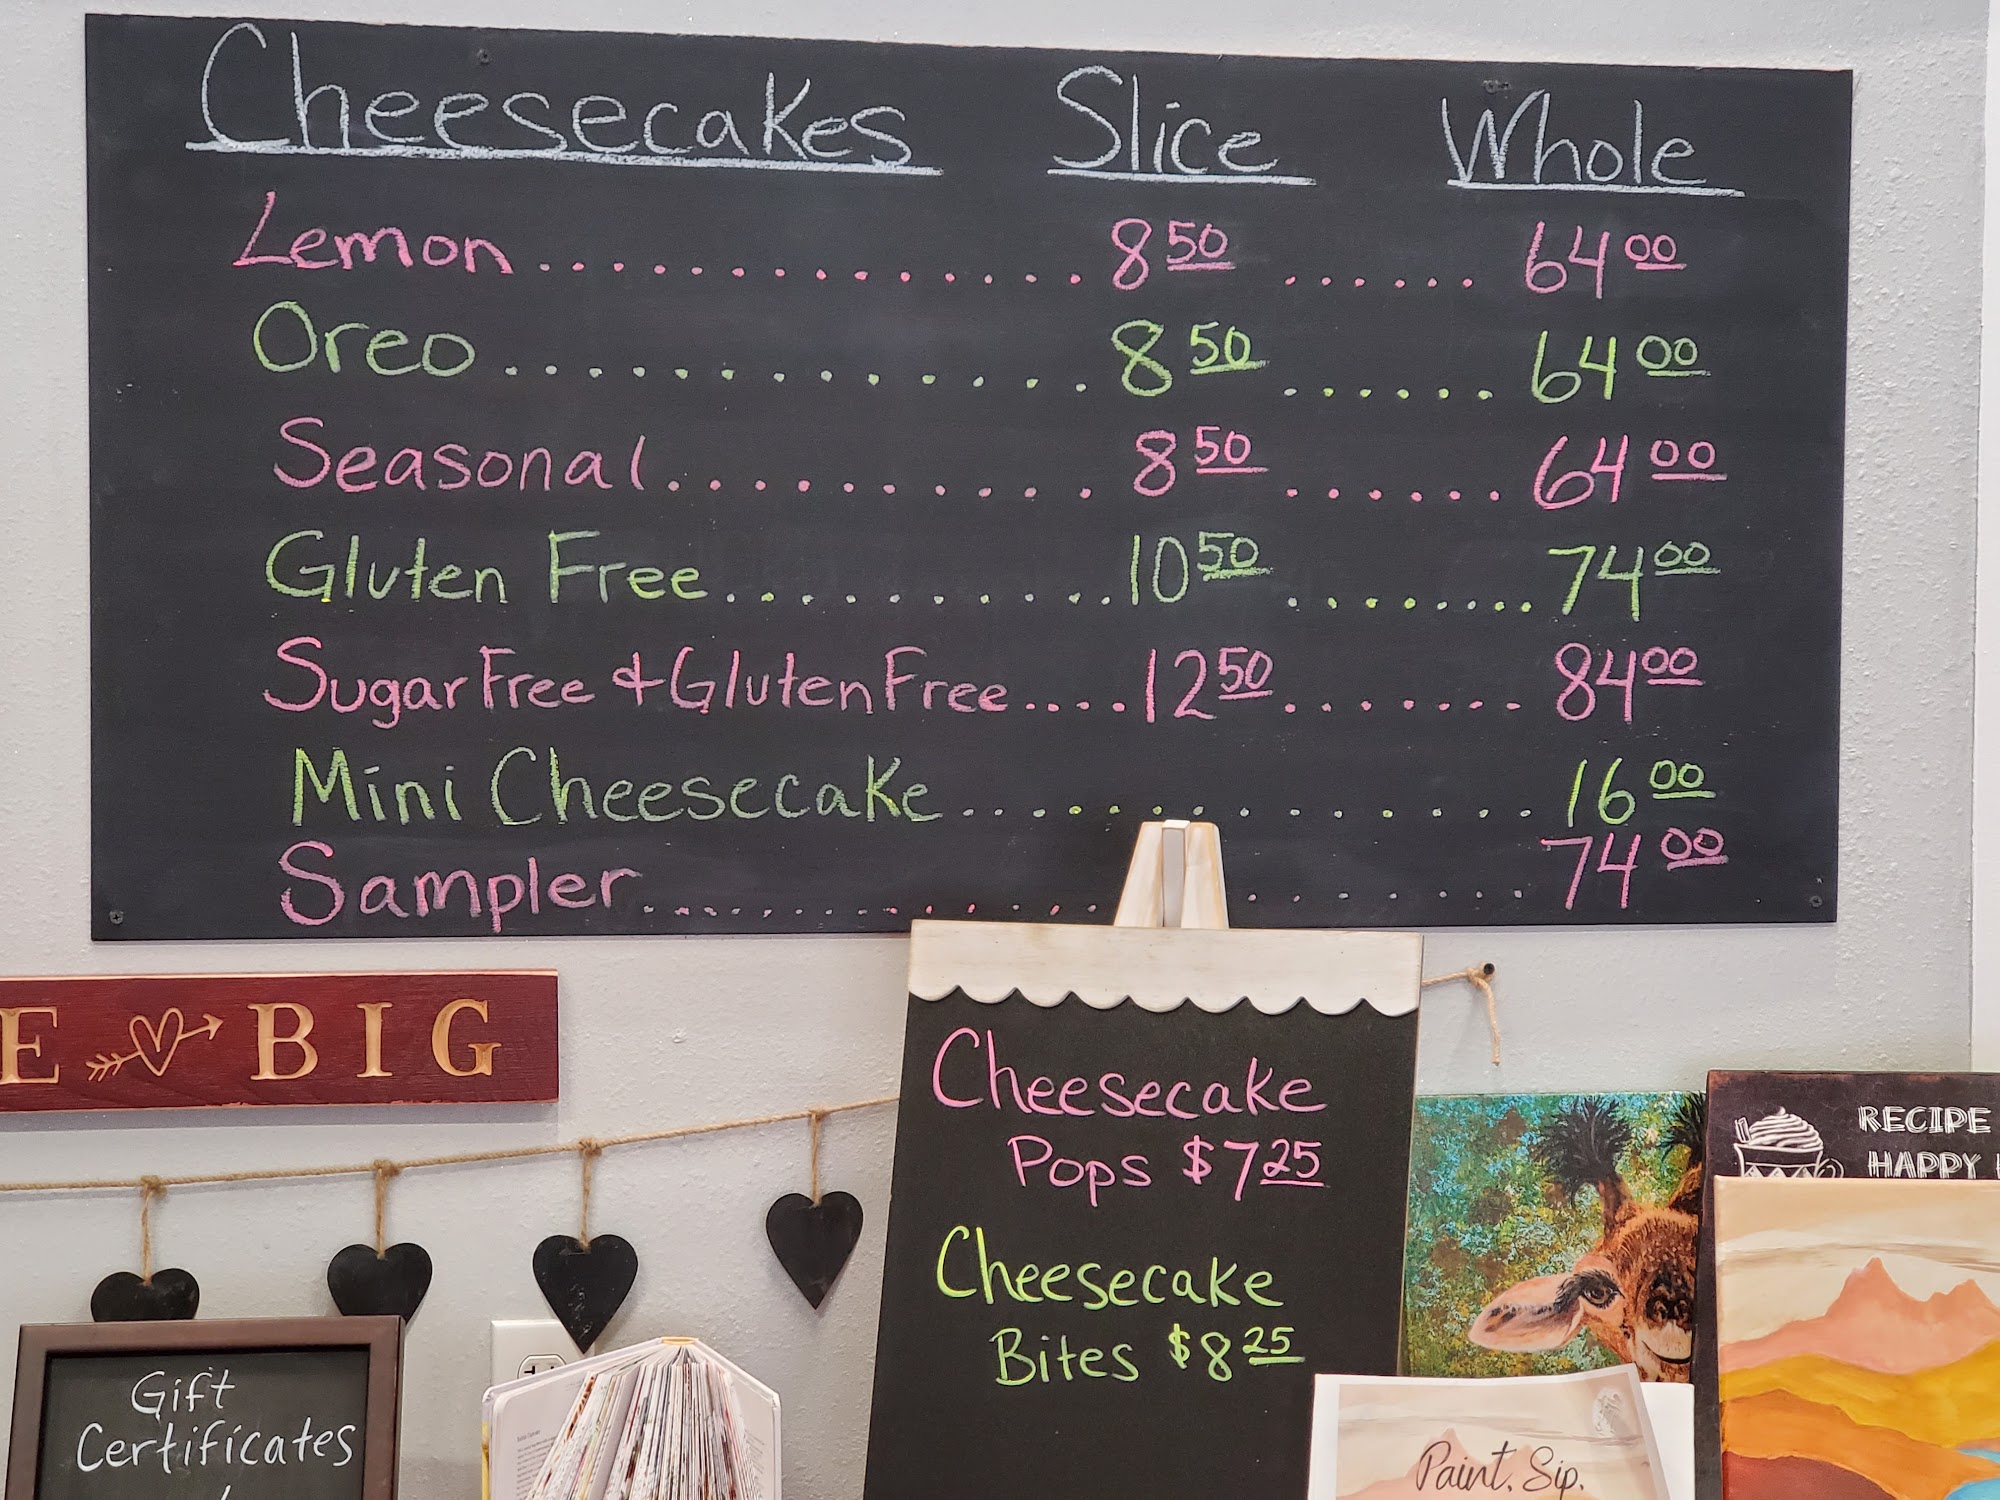 Cheesecakes Slice Whole
Lemon 8 50 64 00
Oreo 8 50 64 00
Seasonal 8 50 64 00
Gluten Free 10 50 74 00
Sugar Free & Gluten Free 12 50 84 00
Mini Cheesecake 16 00
Sampler 74 00
E BIG
Cheesecake
Pops $7 25
Cheesecake
Bites $8 25
RECIPE
HAPPY
Gift
Certificates
Paint. Sip.